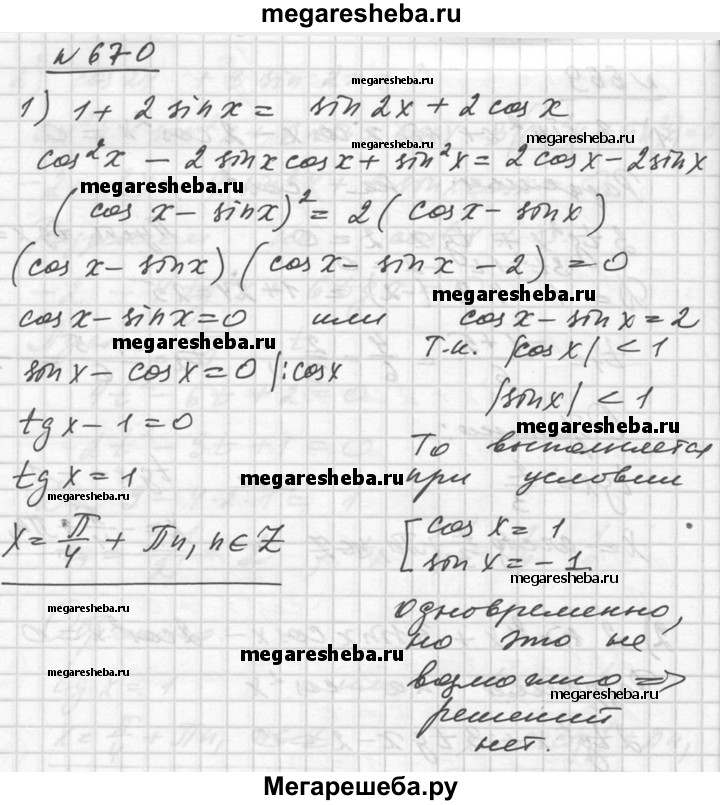 megaresheba.ru
№ 670
megaresheba.ru
1) 1 + 2 sin x = sin 2x + 2 cos x
megaresheba.ru
cos²x − 2 sin x cos x + sin²x = 2 cos x − 2 sin x
megaresheba.ru
(cos x − sin x)² = 2 (cos x − sin x)
(cos x − sin x) (cos x − sin x − 2) = 0
megaresheba.ru
cos x − sin x = 0 или cos x − sin x = 2
megaresheba.ru
Т.к. |cos x| < 1
sin x − cos x = 0 |: cos x
|sin x| < 1
tg x − 1 = 0
megaresheba.ru
То выполняется
tg x = 1
megaresheba.ru
при условии
megaresheba.ru
x = π/4 + πn, n ∈ Z
[ cos x = 1
sin x = −1
megaresheba.ru
одновременно,
megaresheba.ru
но это не
megaresheba.ru
megaresheba.ru
возможно =>
megaresheba.ru
решений
нет.
Мегарешеба.ру